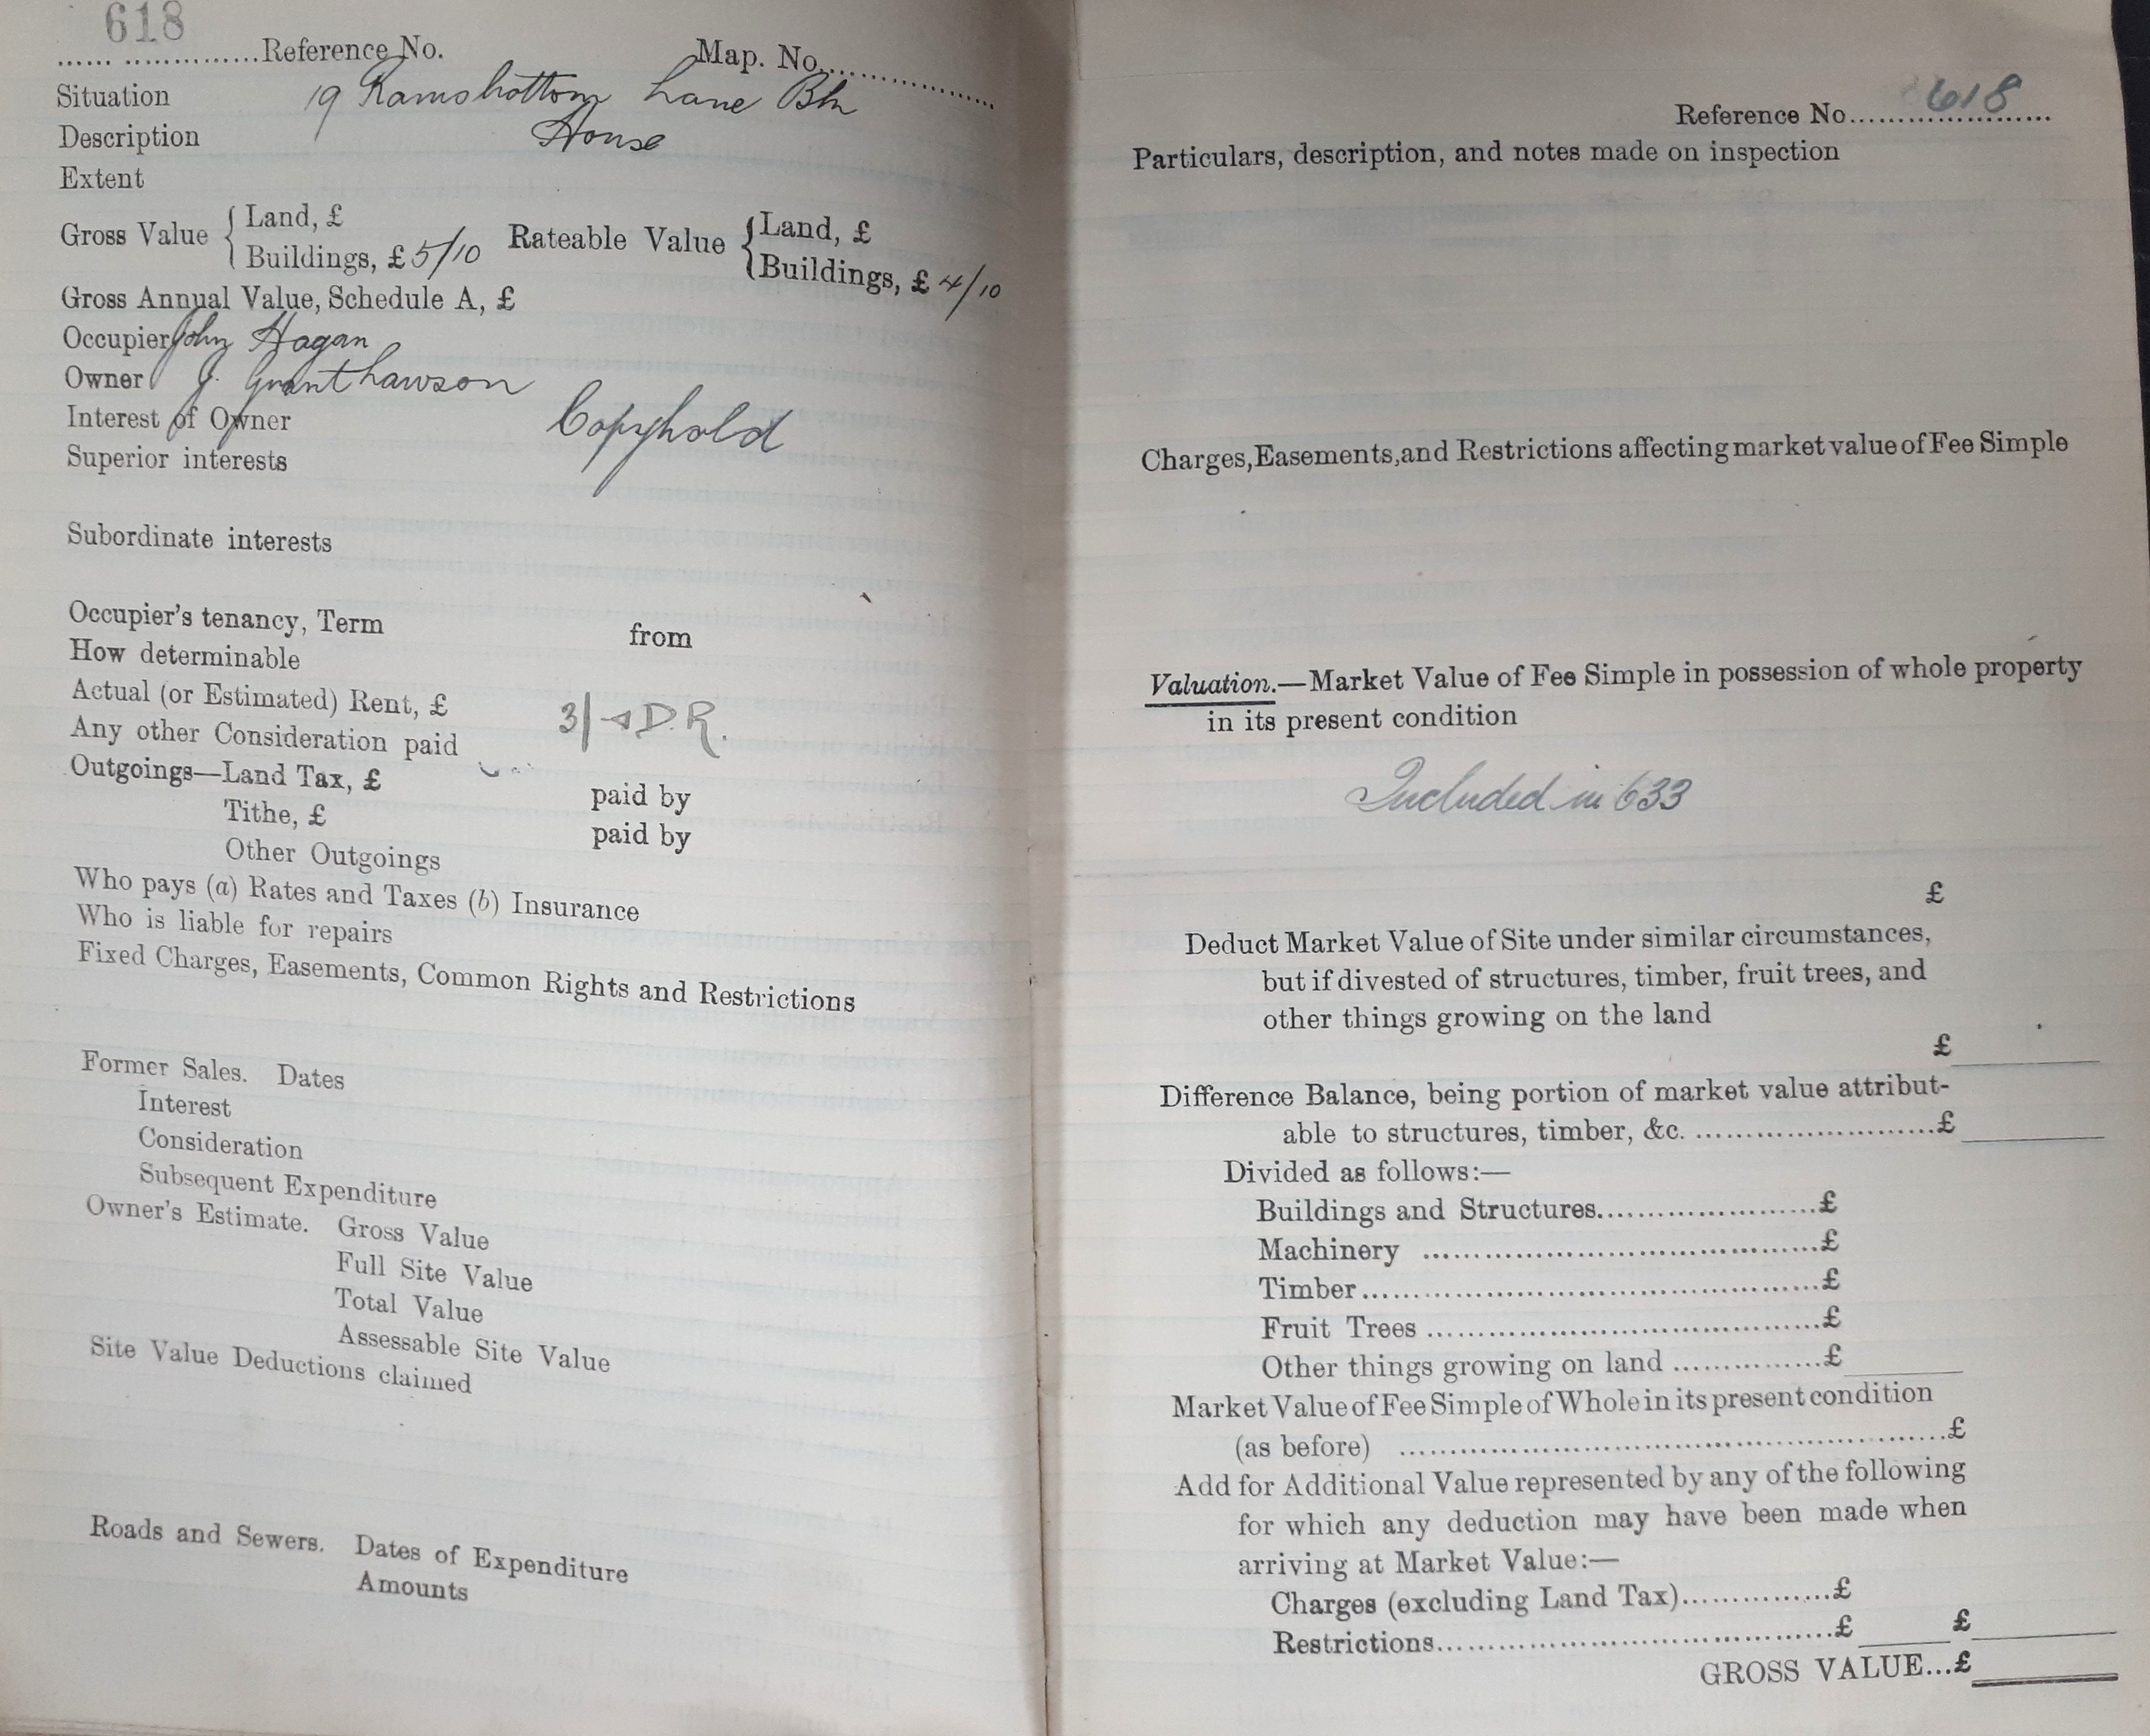 618
...... ..............Reference No. Map. No...................
Situation 19 Ramsbottom Lane Bth
Description House
Extent
Gross Value { Land, £
Buildings, £ 5/10 Rateable Value { Land, £
Buildings, £ 4/10
Gross Annual Value, Schedule A, £
Occupier John Hagan
Owner J. Grant Lawson
Interest of Owner Copyhold
Superior interests
Subordinate interests
Occupier's tenancy, Term from
How determinable
Actual (or Estimated) Rent, £ 3/- D.R.
Any other Consideration paid
Outgoings—Land Tax, £ paid by
Tithe, £ paid by
Other Outgoings
Who pays (a) Rates and Taxes (b) Insurance
Who is liable for repairs
Fixed Charges, Easements, Common Rights and Restrictions
Former Sales. Dates
Interest
Consideration
Subsequent Expenditure
Owner's Estimate. Gross Value
Full Site Value
Total Value
Assessable Site Value
Site Value Deductions claimed
Roads and Sewers. Dates of Expenditure
Amounts
Reference No....618...
Particulars, description, and notes made on inspection
Charges, Easements, and Restrictions affecting market value of Fee Simple
Valuation.—Market Value of Fee Simple in possession of whole property
in its present condition
Included in 633
£
Deduct Market Value of Site under similar circumstances,
but if divested of structures, timber, fruit trees, and
other things growing on the land
£
Difference Balance, being portion of market value attribut-
able to structures, timber, &c. ..........................£
Divided as follows:—
Buildings and Structures.......................£
Machinery .........................................£
Timber................................................£
Fruit Trees .........................................£
Other things growing on land ...............£
Market Value of Fee Simple of Whole in its present condition
(as before) .........................................................£
Add for Additional Value represented by any of the following
for which any deduction may have been made when
arriving at Market Value:—
Charges (excluding Land Tax)...............£
Restrictions.........................................£ £
GROSS VALUE...£